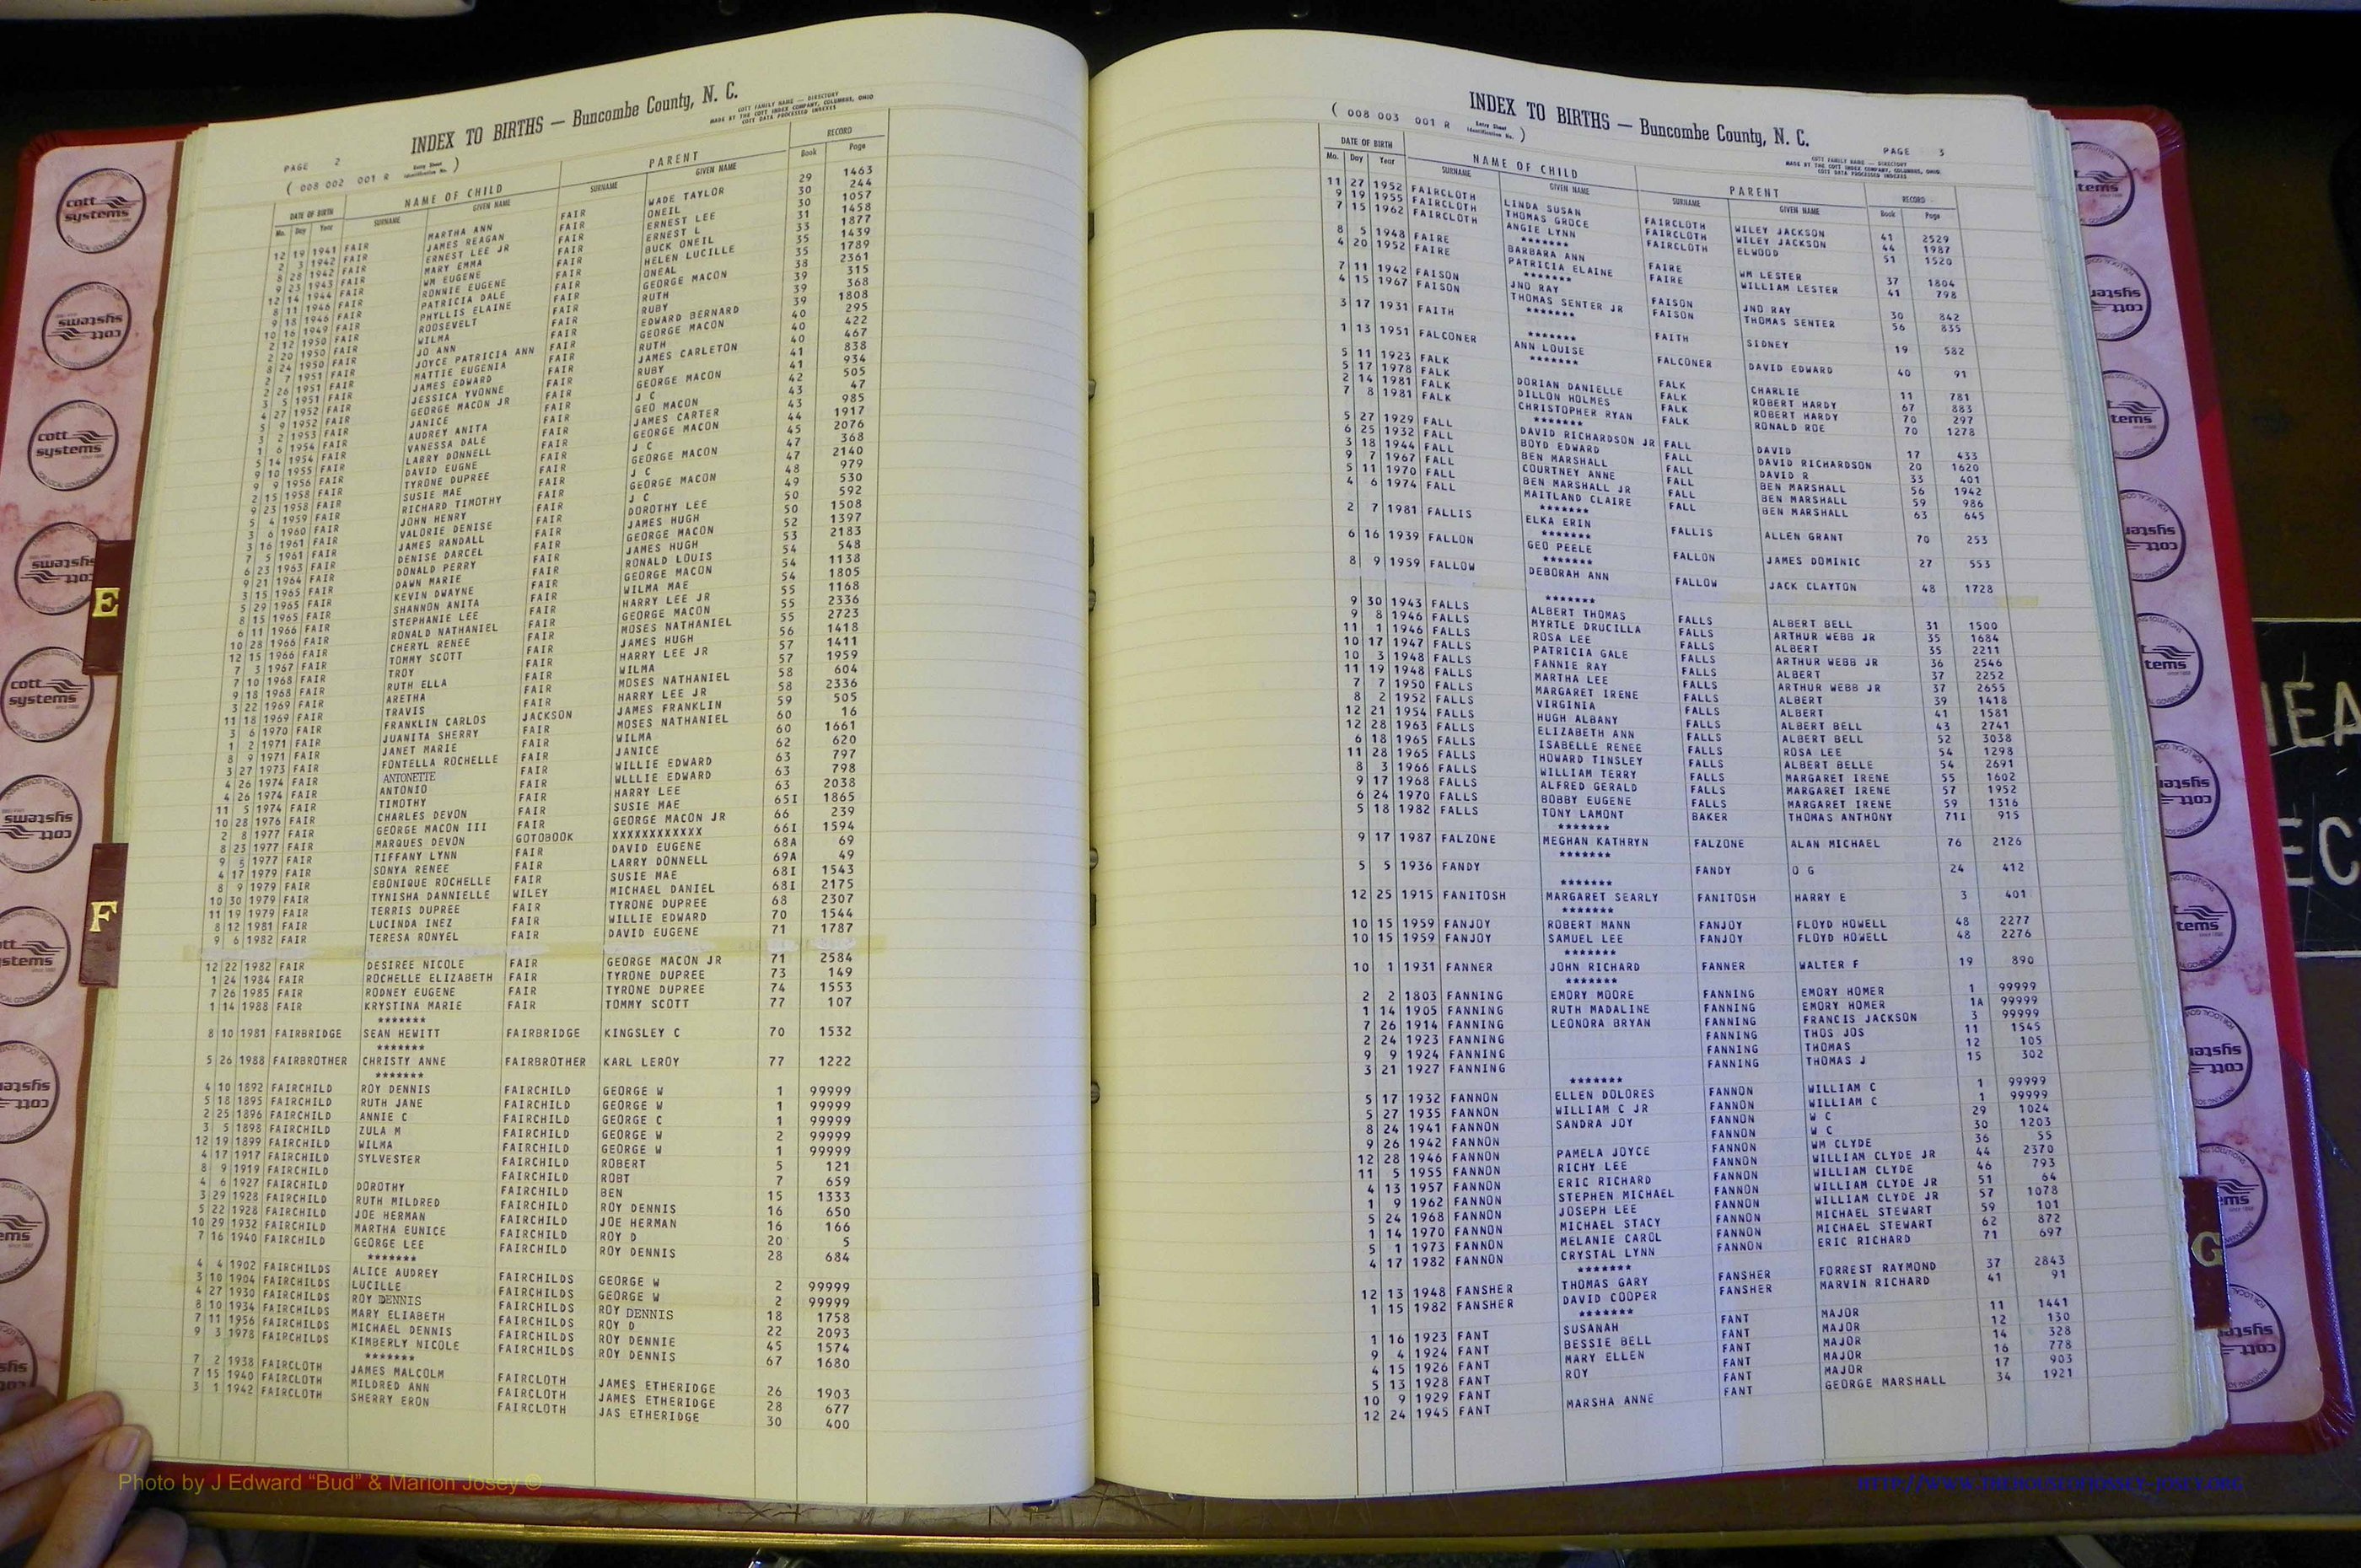 INDEX TO BIRTHS — Buncombe County, N. C.
COTT FAMILY NAME — DIRECTORY
MADE BY THE COTT INDEX COMPANY, COLUMBUS, OHIO
COTT DATA PROCESSED INDEXES
PAGE 2
( 008 002 001 R Entry Sheet Identification No. )
DATE OF BIRTH NAME OF CHILD PARENT RECORD
Mo. Day Year SURNAME GIVEN NAME SURNAME GIVEN NAME Book Page
12 19 1941 FAIR MARTHA ANN FAIR WADE TAYLOR 29 1463
2 3 1942 FAIR JAMES REAGAN FAIR ONEIL 30 244
8 28 1942 FAIR ERNEST LEE JR FAIR ERNEST LEE 30 1057
9 23 1943 FAIR MARY EMMA FAIR ERNEST L 31 1458
12 14 1944 FAIR WM EUGENE FAIR BUCK ONEIL 33 1877
8 11 1946 FAIR RONNIE EUGENE FAIR HELEN LUCILLE 35 1439
9 18 1946 FAIR PATRICIA DALE FAIR ONEAL 35 1789
10 16 1949 FAIR PHYLLIS ELAINE FAIR GEORGE MACON 38 2361
2 12 1950 FAIR ROOSEVELT FAIR RUTH 39 315
2 20 1950 FAIR WILMA FAIR RUBY 39 368
8 24 1950 FAIR JO ANN FAIR EDWARD BERNARD 39 1808
2 7 1951 FAIR JOYCE PATRICIA ANN FAIR GEORGE MACON 40 295
2 26 1951 FAIR MATTIE EUGENIA FAIR RUTH 40 422
3 5 1951 FAIR JAMES EDWARD FAIR JAMES CARLETON 40 467
4 27 1952 FAIR JESSICA YVONNE FAIR RUBY 41 838
5 9 1952 FAIR GEORGE MACON JR FAIR GEORGE MACON 41 934
3 2 1953 FAIR JANICE FAIR J C 42 505
1 6 1954 FAIR AUDREY ANITA FAIR GEO MACON 43 47
5 14 1954 FAIR VANESSA DALE FAIR JAMES CARTER 43 985
9 10 1955 FAIR LARRY DONNELL FAIR GEORGE MACON 44 1917
9 9 1956 FAIR DAVID EUGNE FAIR J C 45 2076
2 15 1958 FAIR TYRONE DUPREE FAIR GEORGE MACON 47 368
9 23 1958 FAIR SUSIE MAE FAIR J C 47 2140
5 4 1959 FAIR RICHARD TIMOTHY FAIR GEORGE MACON 48 979
3 6 1960 FAIR JOHN HENRY FAIR J C 49 530
3 16 1961 FAIR VALORIE DENISE FAIR DOROTHY LEE 50 592
7 5 1961 FAIR JAMES RANDALL FAIR JAMES HUGH 50 1508
6 23 1963 FAIR DENISE DARCEL FAIR GEORGE MACON 52 1397
9 21 1964 FAIR DONALD PERRY FAIR JAMES HUGH 53 2183
3 15 1965 FAIR DAWN MARIE FAIR RONALD LOUIS 54 548
5 29 1965 FAIR KEVIN DWAYNE FAIR GEORGE MACON 54 1138
8 15 1965 FAIR SHANNON ANITA FAIR WILMA MAE 54 1805
6 11 1966 FAIR STEPHANIE LEE FAIR HARRY LEE JR 55 1168
10 28 1966 FAIR RONALD NATHANIEL FAIR GEORGE MACON 55 2336
12 15 1966 FAIR CHERYL RENEE FAIR MOSES NATHANIEL 55 2723
7 3 1967 FAIR TOMMY SCOTT FAIR JAMES HUGH 56 1418
7 10 1968 FAIR TROY FAIR HARRY LEE JR 57 1411
9 18 1968 FAIR RUTH ELLA FAIR WILMA 57 1959
3 22 1969 FAIR ARETHA FAIR MOSES NATHANIEL 58 604
11 18 1969 FAIR TRAVIS FAIR HARRY LEE JR 58 2336
3 6 1970 FAIR FRANKLIN CARLOS JACKSON JAMES FRANKLIN 59 505
1 2 1971 FAIR JUANITA SHERRY FAIR MOSES NATHANIEL 60 16
8 9 1971 FAIR JANET MARIE FAIR WILMA 60 1661
3 27 1973 FAIR FONTELLA ROCHELLE FAIR JANICE 62 620
4 26 1974 FAIR ANTONETTE FAIR WILLIE EDWARD 63 797
4 26 1974 FAIR ANTONIO FAIR WLLLIE EDWARD 63 798
11 5 1974 FAIR TIMOTHY FAIR HARRY LEE 63 2038
10 28 1976 FAIR CHARLES DEVON FAIR SUSIE MAE 65I 1865
2 8 1977 FAIR GEORGE MACON III FAIR GEORGE MACON JR 66 239
8 23 1977 FAIR MARQUES DEVON GOTOBOOK XXXXXXXXXXXX 66I 1594
9 5 1977 FAIR TIFFANY LYNN FAIR DAVID EUGENE 68A 69
4 17 1979 FAIR SONYA RENEE FAIR LARRY DONNELL 69A 49
8 9 1979 FAIR EBONIQUE ROCHELLE FAIR SUSIE MAE 68I 1543
10 30 1979 FAIR TYNISHA DANNIELLE WILEY MICHAEL DANIEL 68I 2175
11 19 1979 FAIR TERRIS DUPREE FAIR TYRONE DUPREE 68 2307
8 12 1981 FAIR LUCINDA INEZ FAIR WILLIE EDWARD 70 1544
9 6 1982 FAIR TERESA RONYEL FAIR DAVID EUGENE 71 1787
12 22 1982 FAIR DESIREE NICOLE FAIR GEORGE MACON JR 71 2584
1 24 1984 FAIR ROCHELLE ELIZABETH FAIR TYRONE DUPREE 73 149
7 26 1985 FAIR RODNEY EUGENE FAIR TYRONE DUPREE 74 1553
1 14 1988 FAIR KRYSTINA MARIE FAIR TOMMY SCOTT 77 107
*******
8 10 1981 FAIRBRIDGE SEAN HEWITT FAIRBRIDGE KINGSLEY C 70 1532
*******
5 26 1988 FAIRBROTHER CHRISTY ANNE FAIRBROTHER KARL LEROY 77 1222
*******
4 10 1892 FAIRCHILD ROY DENNIS FAIRCHILD GEORGE W 1 99999
5 18 1895 FAIRCHILD RUTH JANE FAIRCHILD GEORGE W 1 99999
2 25 1896 FAIRCHILD ANNIE C FAIRCHILD GEORGE C 1 99999
3 5 1898 FAIRCHILD ZULA M FAIRCHILD GEORGE W 2 99999
12 19 1899 FAIRCHILD WILMA FAIRCHILD GEORGE W 1 99999
4 17 1917 FAIRCHILD SYLVESTER FAIRCHILD ROBERT 5 121
8 9 1919 FAIRCHILD FAIRCHILD ROBT 7 659
4 6 1927 FAIRCHILD DOROTHY FAIRCHILD BEN 15 1333
3 29 1928 FAIRCHILD RUTH MILDRED FAIRCHILD ROY DENNIS 16 650
5 22 1928 FAIRCHILD JOE HERMAN FAIRCHILD JOE HERMAN 16 166
10 29 1932 FAIRCHILD MARTHA EUNICE FAIRCHILD ROY D 20 5
7 16 1940 FAIRCHILD GEORGE LEE FAIRCHILD ROY DENNIS 28 684
*******
4 4 1902 FAIRCHILDS ALICE AUDREY FAIRCHILDS GEORGE W 2 99999
3 10 1904 FAIRCHILDS LUCILLE FAIRCHILDS GEORGE W 2 99999
4 27 1930 FAIRCHILDS ROY DENNIS FAIRCHILDS ROY DENNIS 18 1758
8 10 1934 FAIRCHILDS MARY ELIABETH FAIRCHILDS ROY D 22 2093
7 11 1956 FAIRCHILDS MICHAEL DENNIS FAIRCHILDS ROY DENNIE 45 1574
9 3 1978 FAIRCHILDS KIMBERLY NICOLE FAIRCHILDS ROY DENNIS 67 1680
*******
7 2 1938 FAIRCLOTH JAMES MALCOLM FAIRCLOTH JAMES ETHERIDGE 26 1903
7 15 1940 FAIRCLOTH MILDRED ANN FAIRCLOTH JAMES ETHERIDGE 28 677
3 1 1942 FAIRCLOTH SHERRY ERON FAIRCLOTH JAS ETHERIDGE 30 400
INDEX TO BIRTHS — Buncombe County, N. C.
( 008 003 001 R Entry Sheet Identification No. )
PAGE 3
COTT FAMILY NAME — DIRECTORY
MADE BY THE COTT INDEX COMPANY, COLUMBUS, OHIO
COTT DATA PROCESSED INDEXES
DATE OF BIRTH NAME OF CHILD PARENT RECORD
Mo. Day Year SURNAME GIVEN NAME SURNAME GIVEN NAME Book Page
11 27 1952 FAIRCLOTH LINDA SUSAN FAIRCLOTH WILEY JACKSON 41 2529
9 19 1955 FAIRCLOTH THOMAS GROCE FAIRCLOTH WILEY JACKSON 44 1987
7 15 1962 FAIRCLOTH ANGIE LYNN FAIRCLOTH ELWOOD 51 1520
*******
8 5 1948 FAIRE BARBARA ANN FAIRE WM LESTER 37 1804
4 20 1952 FAIRE PATRICIA ELAINE FAIRE WILLIAM LESTER 41 798
*******
7 11 1942 FAISON JNO RAY FAISON JNO RAY 30 842
4 15 1967 FAISON THOMAS SENTER JR FAISON THOMAS SENTER 56 835
*******
3 17 1931 FAITH FAITH SIDNEY 19 582
*******
1 13 1951 FALCONER ANN LOUISE FALCONER DAVID EDWARD 40 91
*******
5 11 1923 FALK FALK CHARLIE 11 781
5 17 1978 FALK DORIAN DANIELLE FALK ROBERT HARDY 67 883
2 14 1981 FALK DILLON HOLMES FALK ROBERT HARDY 70 297
7 8 1981 FALK CHRISTOPHER RYAN FALK RONALD ROE 70 1278
*******
5 27 1929 FALL DAVID RICHARDSON JR FALL DAVID 17 433
6 25 1932 FALL BOYD EDWARD FALL DAVID RICHARDSON 20 1620
3 18 1944 FALL BEN MARSHALL FALL DAVID R 33 401
9 7 1967 FALL COURTNEY ANNE FALL BEN MARSHALL 56 1942
5 11 1970 FALL BEN MARSHALL JR FALL BEN MARSHALL 59 986
4 6 1974 FALL MAITLAND CLAIRE FALL BEN MARSHALL 63 645
*******
2 7 1981 FALLIS ELKA ERIN FALLIS ALLEN GRANT 70 253
*******
6 16 1939 FALLON GEO PEELE FALLON JAMES DOMINIC 27 553
*******
8 9 1959 FALLOW DEBORAH ANN FALLOW JACK CLAYTON 48 1728
*******
9 30 1943 FALLS ALBERT THOMAS FALLS ALBERT BELL 31 1500
9 8 1946 FALLS MYRTLE DRUCILLA FALLS ARTHUR WEBB JR 35 1684
11 1 1946 FALLS ROSA LEE FALLS ALBERT 35 2211
10 17 1947 FALLS PATRICIA GALE FALLS ARTHUR WEBB JR 36 2546
10 3 1948 FALLS FANNIE RAY FALLS ALBERT 37 2252
11 19 1948 FALLS MARTHA LEE FALLS ARTHUR WEBB JR 37 2655
7 7 1950 FALLS MARGARET IRENE FALLS ALBERT 39 1418
8 2 1952 FALLS VIRGINIA FALLS ALBERT 41 1581
12 21 1954 FALLS HUGH ALBANY FALLS ALBERT BELL 43 2741
12 28 1963 FALLS ELIZABETH ANN FALLS ALBERT BELL 52 3038
6 18 1965 FALLS ISABELLE RENEE FALLS ROSA LEE 54 1298
11 28 1965 FALLS HOWARD TINSLEY FALLS ALBERT BELLE 54 2691
8 3 1966 FALLS WILLIAM TERRY FALLS MARGARET IRENE 55 1602
9 17 1968 FALLS ALFRED GERALD FALLS MARGARET IRENE 57 1952
6 24 1970 FALLS BOBBY EUGENE FALLS MARGARET IRENE 59 1316
5 18 1982 FALLS TONY LAMONT BAKER THOMAS ANTHONY 71I 915
*******
9 17 1987 FALZONE MEGHAN KATHRYN FALZONE ALAN MICHAEL 76 2126
*******
5 5 1936 FANDY FANDY O G 24 412
*******
12 25 1915 FANITOSH MARGARET SEARLY FANITOSH HARRY E 3 401
*******
10 15 1959 FANJOY ROBERT MANN FANJOY FLOYD HOWELL 48 2277
10 15 1959 FANJOY SAMUEL LEE FANJOY FLOYD HOWELL 48 2276
*******
10 1 1931 FANNER JOHN RICHARD FANNER WALTER F 19 890
*******
2 2 1803 FANNING EMORY MOORE FANNING EMORY HOMER 1 99999
1 14 1905 FANNING RUTH MADALINE FANNING EMORY HOMER 1A 99999
7 26 1914 FANNING LEONORA BRYAN FANNING FRANCIS JACKSON 3 99999
2 24 1923 FANNING FANNING THOS JOS 11 1545
9 9 1924 FANNING FANNING THOMAS 12 105
3 21 1927 FANNING FANNING THOMAS J 15 302
*******
5 17 1932 FANNON ELLEN DOLORES FANNON WILLIAM C 1 99999
5 27 1935 FANNON WILLIAM C JR FANNON WILLIAM C 1 99999
8 24 1941 FANNON SANDRA JOY FANNON W C 29 1024
9 26 1942 FANNON FANNON W C 30 1203
12 28 1946 FANNON PAMELA JOYCE FANNON WM CLYDE 36 55
11 5 1955 FANNON RICHY LEE FANNON WILLIAM CLYDE JR 44 2370
4 13 1957 FANNON ERIC RICHARD FANNON WILLIAM CLYDE 46 793
1 9 1962 FANNON STEPHEN MICHAEL FANNON WILLIAM CLYDE JR 51 64
5 24 1968 FANNON JOSEPH LEE FANNON WILLIAM CLYDE JR 57 1078
1 14 1970 FANNON MICHAEL STACY FANNON MICHAEL STEWART 59 101
5 1 1973 FANNON MELANIE CAROL FANNON MICHAEL STEWART 62 872
4 17 1982 FANNON CRYSTAL LYNN FANNON ERIC RICHARD 71 697
*******
12 13 1948 FANSHER THOMAS GARY FANSHER FORREST RAYMOND 37 2843
1 15 1982 FANSHER DAVID COOPER FANSHER MARVIN RICHARD 41 91
*******
1 16 1923 FANT SUSANAH FANT MAJOR 11 1441
9 4 1924 FANT BESSIE BELL FANT MAJOR 12 130
4 15 1926 FANT MARY ELLEN FANT MAJOR 14 328
5 13 1928 FANT ROY FANT MAJOR 16 778
10 9 1929 FANT FANT MAJOR 17 903
12 24 1945 FANT MARSHA ANNE FANT GEORGE MARSHALL 34 1921
E
F
G
cott systems
Photo by J Edward “Bud” & Marion Josey ©